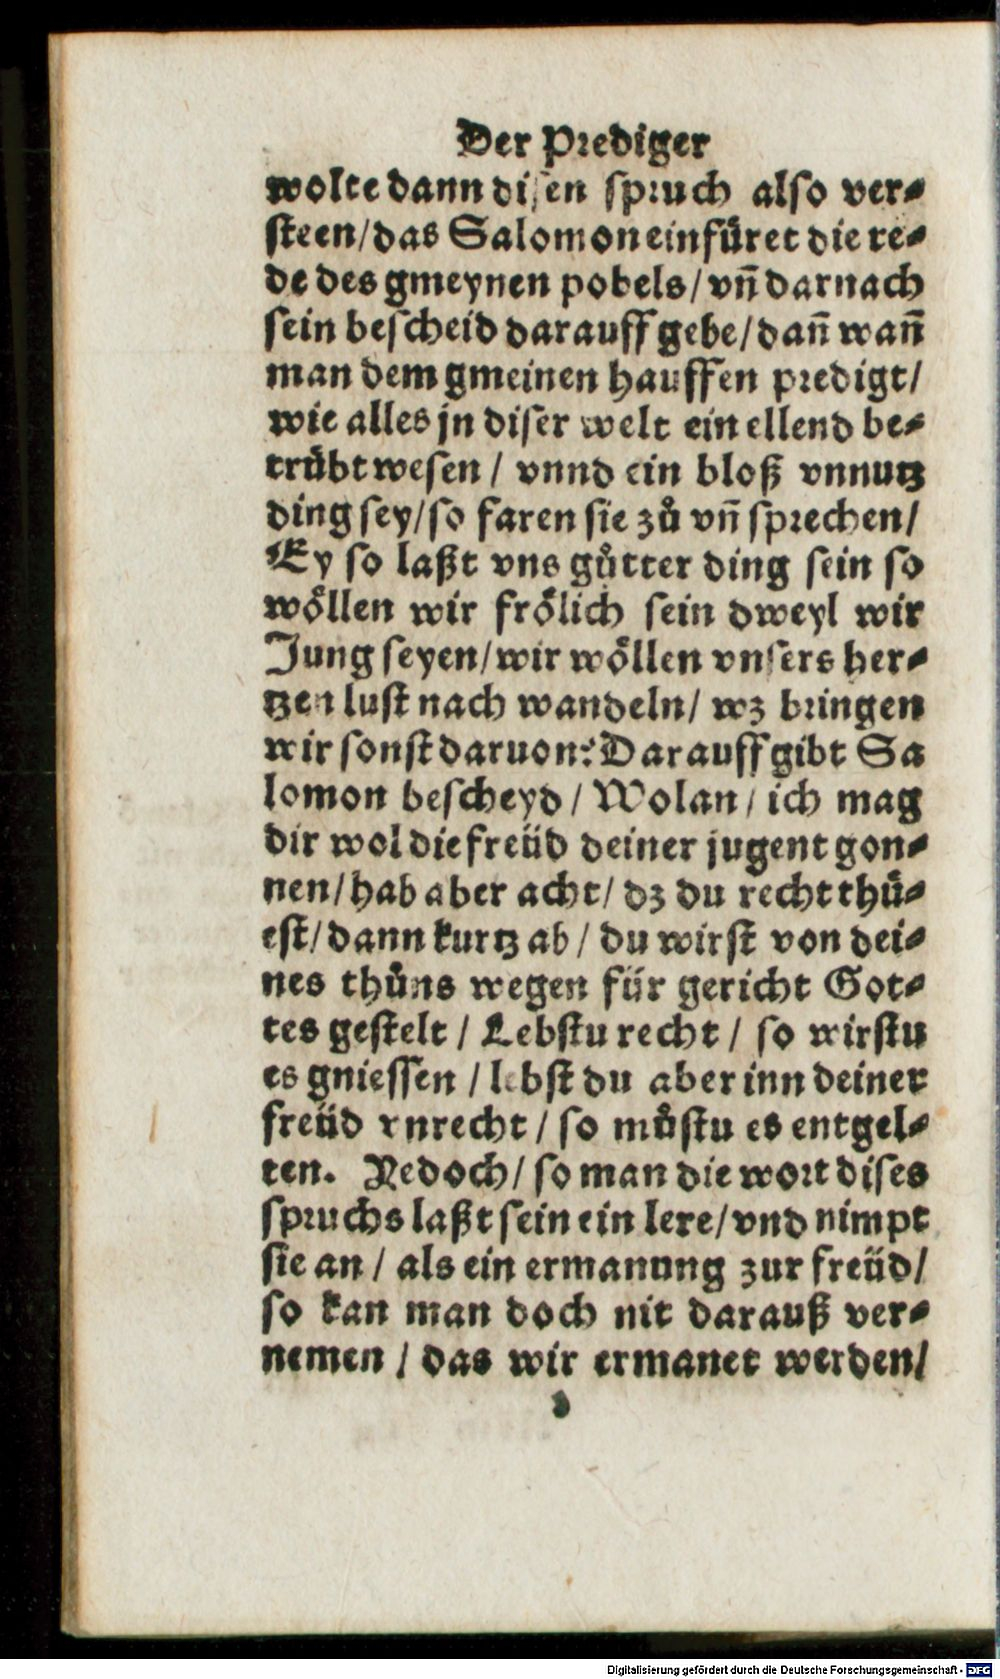 Der Prediger
wolte dann disen spruch also ver⸗
steen/das Salomon einfüret die re⸗
de des gmeynen pobels/vñ darnach
sein bescheid darauff gebe/dañ wañ
man dem gmeinen hauffen predigt/
wie alles jn diser welt ein ellend be⸗
trübt wesen / vnnd ein bloß vnnutz
ding sey/so faren sie zů vñ sprechen/
Ey so laßt vns gůtter ding sein so
wöllen wir frölich sein dweyl wir
Jung seyen/wir wöllen vnsers her⸗
tzen lust nach wandeln/ wz bringen
wir sonst daruon? Darauff gibt Sa
lomon bescheyd / Wolan / ich mag
dir wol die freüd deiner jugent gon⸗
nen/hab aber acht/ dz du recht thů⸗
est/dann kurtz ab / du wirst von dei⸗
nes thůns wegen für gericht Got⸗
tes gestelt / Lebstu recht / so wirstu
es gniessen / lebst du aber inn deiner
freüd vnrecht / so můstu es entgel⸗
ten. Yedoch/ so man die wort dises
spruchs laßt sein ein lere/vnd nimpt
sie an / als ein ermanung zur freüd/
so kan man doch nit darauß ver⸗
nemen / das wir ermanet werden/
Digitalisierung gefördert durch die Deutsche Forschungsgemeinschaft - DFG